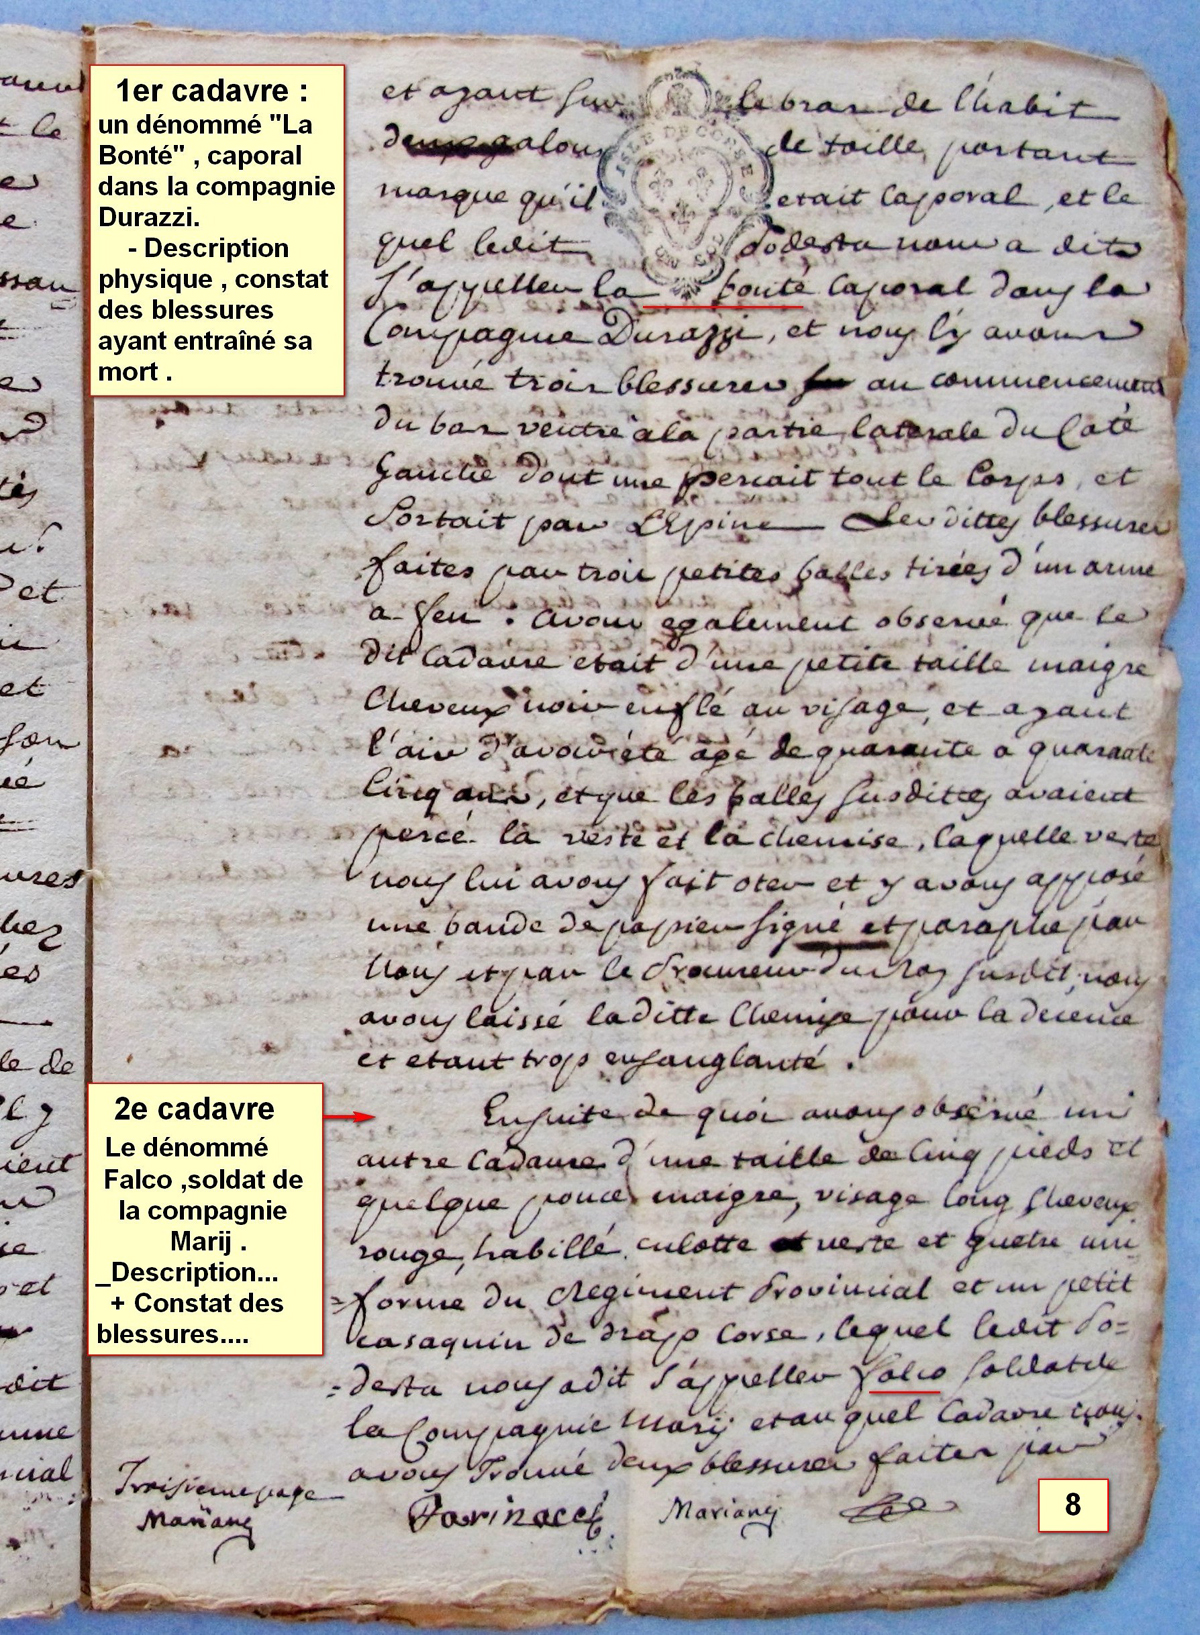 1er cadavre :
un dénommé "La
Bonté" , caporal
dans la compagnie
Durazzi.
- Description
physique , constat
des blessures
ayant entraîné sa
mort .
et ayant sur le bras de l'habit
deux galons de taille, portant
marque qu'il etait Caporal, et le
quel ledit Podesta nous a dit
s'appeller la bonté Caporal dans la
Compagnie Durazzi, et nous l'y avons
trouvé trois blessures au commencement
du bas ventre a la partie laterale du Coté
Gauche dont une persait tout le Corps, et
Sortait par L'Epine Les dittes blessures
faites par trois petites balles tirées d'un arme
a feu : avons egalement observé que le
dit Cadavre etait d'une petite taille maigre
Cheveux noir enflé au visage, et ayant
l'air d'avoir été agé de quarante a quarante
Cinq ans, et que les balles susdittes avaient
percé la veste et la chemise, laquelle veste
nous lui avons fait oter et y avons apposé
une bande de papier signé et paraphé par
Nous et par le Procureur du Roy susdit, nous
avons laissé laditte Chemise pour la décence
et etant trop ensanglanté .
2e cadavre
Le dénommé
Falco ,soldat de
la compagnie
Marij .
_Description...
+ Constat des
blessures....
Ensuite de quoi avons observé un
autre Cadavre d'une taille de Cinq pieds et
quelque pouce maigre, visage long Cheveux
rouge, habillé culotte veste et guetre uni
=forme du Regiment Provincial et un petit
casaquin de drap Corse, lequel ledit Po=
=desta nous a dit s'appeller falco Soldat de
la Compagnie Marij et au quel Cadavre nous
avons Trouvé deux blessures faites par
Troisieme page
Mariany
Farinacci
Marianj
8
ISLE DE CORSE